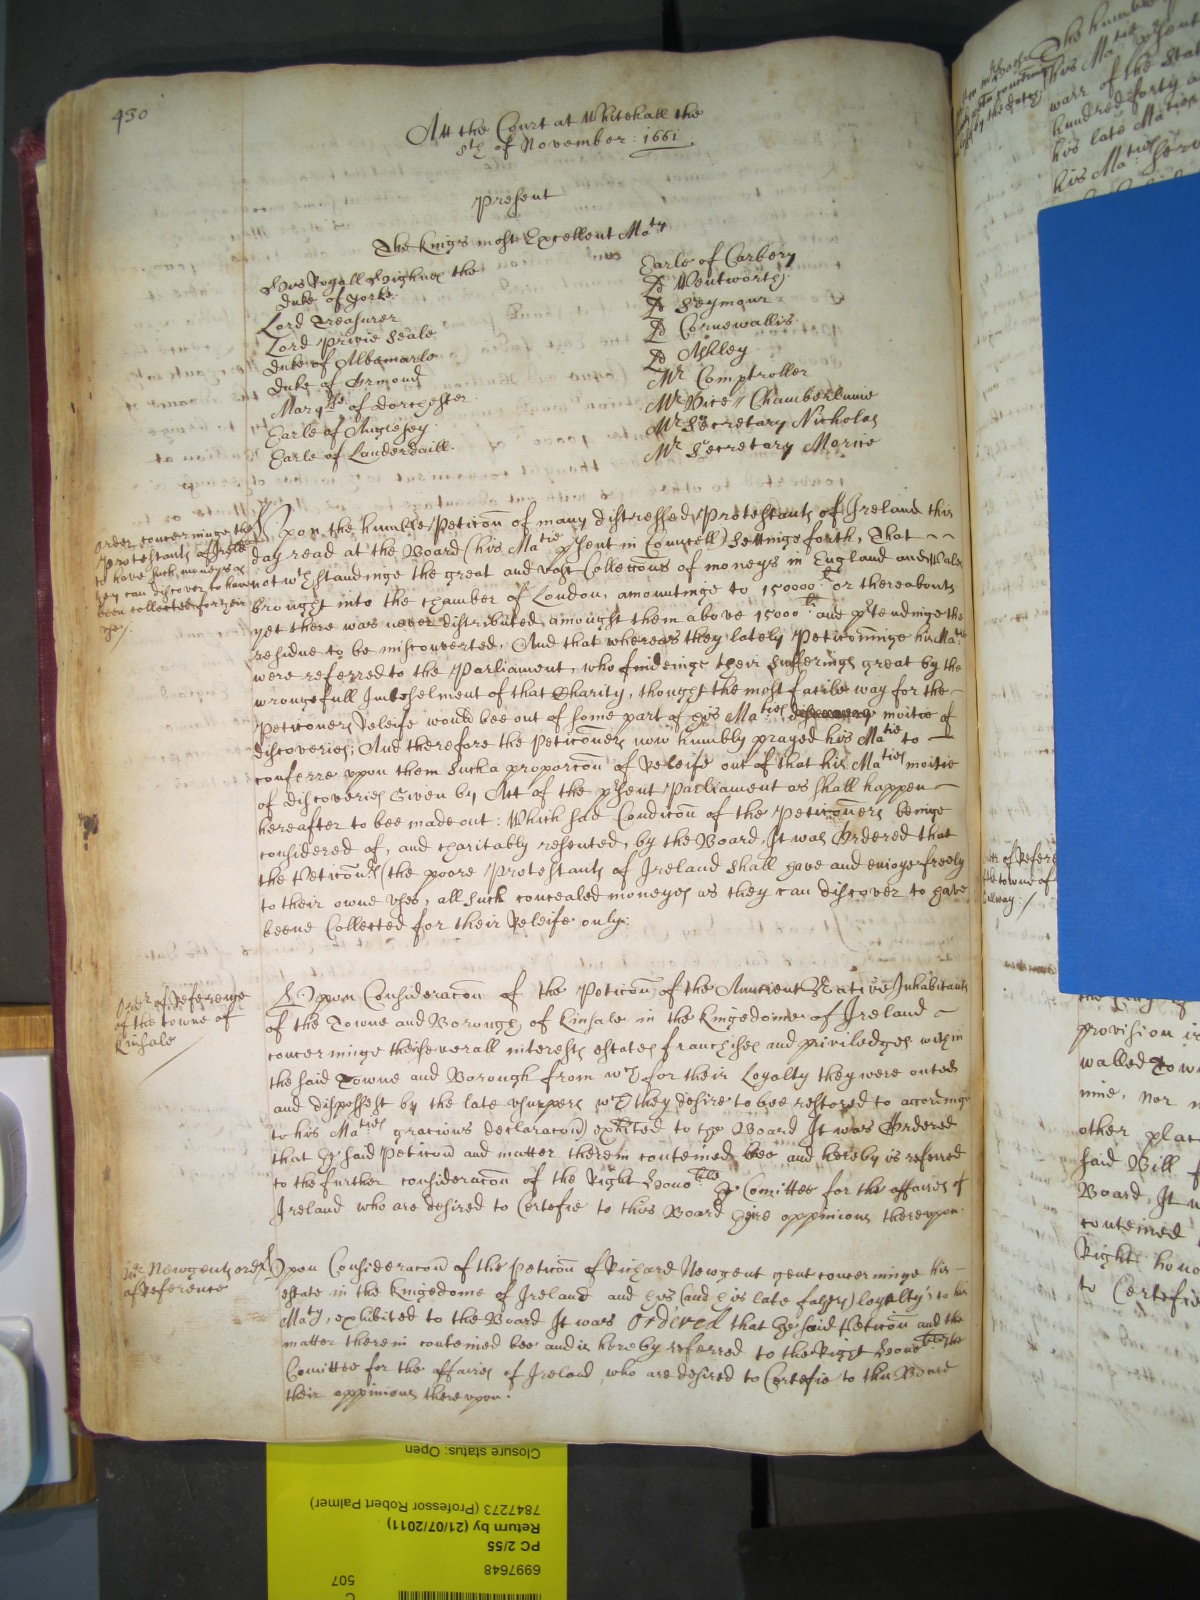 430
Att the Court at Whitehall the
8th of November: 1661
Present
The Kings most Excellent Maty
His Royall Highnes the
Duke of Yorke.
Lord Treasurer
Lord Privie Seale
Duke of Albemarle
Duke of Ormond
Marqsse of Dorchester
Earle of Anglesey
Earle of Lauderdaill.
Earle of Carbery
Ld Wentworth
Ld Seymour
Ld Cornewallis
Ld Ashley
Mr Comptroller
Mr Vice Chamberlaine
Mr Secretary Nicholas
Mr Secretary Morice
Order concerninge the
Protestants of Ireld
to have such moneys as
they can discover to have
been collected for their
use.
Upon the humble Peticon of many distressed Protestants of Ireland this
day read at the Board (his Matie pSent in Councell) settinge forth, That
notwthstandinge the great and vast Colleccons of moneys in England and Wales
brought into the Chamber of London, amountinge to 150000li or thereabouts
yet there was never distributed amongst them above 15000li and pRtendinge the
residue to be misconverted, And that whereas they lately Peticoninge his Matie
were referred to the Parliament, who findeinge their sufferings great by the
wrongefull Imbeselment of that Charity, thought the most facile way for the
Peticoners Releife would bee out of some part of his Maties moitie of
discoveries; And therefore the Peticoners now humbly prayed his Matie to
conferre upon them such a proporcon of Releife out of that his Maties moitie
of discoveries Given by Act of the pSent Parliament as shall happen
hereafter to bee made out: Which sad Condicon of the Peticoners beinge
considered of, and charitably resented, by the Board, It was Ordered that
the Peticonrs (the poore Protestants of Ireland shall have and enioye freely
to their owne uses, all such concealed moneyes as they can discover to have
beene Collected for their Releife only.
Order of Reference
of the towne of
Kinsale
Upon Consideracon of the Peticon of the Auncient Native Inhabitants
of the Towne and Borough of Kinsale in the Kingedome of Ireland
concerninge their severall interests estates franchises and priviledges within
the said Towne and Borough from wch for their Loyalty they were outed
and dispossest by the late usurpers wch they desire to bee restored to accordinge
to his Maties gracious declaracon) exhited to the Board It was Ordered
that the said Peticon and matter therein conteined bee and hereby is referred
to the further consideracon of the Right Honoble the Comittee for the affaires of
Ireland who are desired to Certefie to this Board their oppinions thereupon.
Newgents order
of Reference
Upon Consideracon of the Peticon of Richard Newgent gent concerninge his
estate in the Kingedome of Ireland and his (and his late fathers) loyalty to his
Maty, exhibited to the Board It was Ordered that the said Peticon and the
matter therein conteined bee and is hereby referred to the Right Honoble the
Comittee for the affaires of Ireland, who are desired to Certefie to this Board
their oppinions thereupon.
his Matie
warr of the
hundred forty
his late Maties
his Maties
provision
walled Tow
nine, nor
other plac
said Bill
Board, It
conteined
Right hono
to Certefie
Closure status: Open
7847273 (Professor Robert Palmer)
Return by (21/07/2011)
PC 2/55
6997648
507